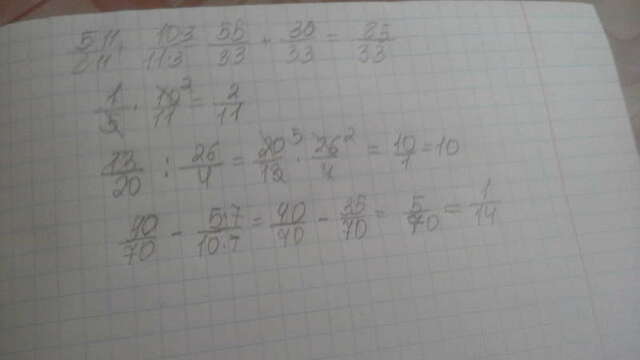 5·11/3·11 10·3/11·3 55/33 + 30/33 = 85/33
1/5 · 10²/11 = 2/11
13/20 : 26/4 = 20⁵/13 · 26²/4 = 10/1 = 10
40/70 - 5·7/10·7 = 40/70 - 35/70 = 5/70 = 1/14